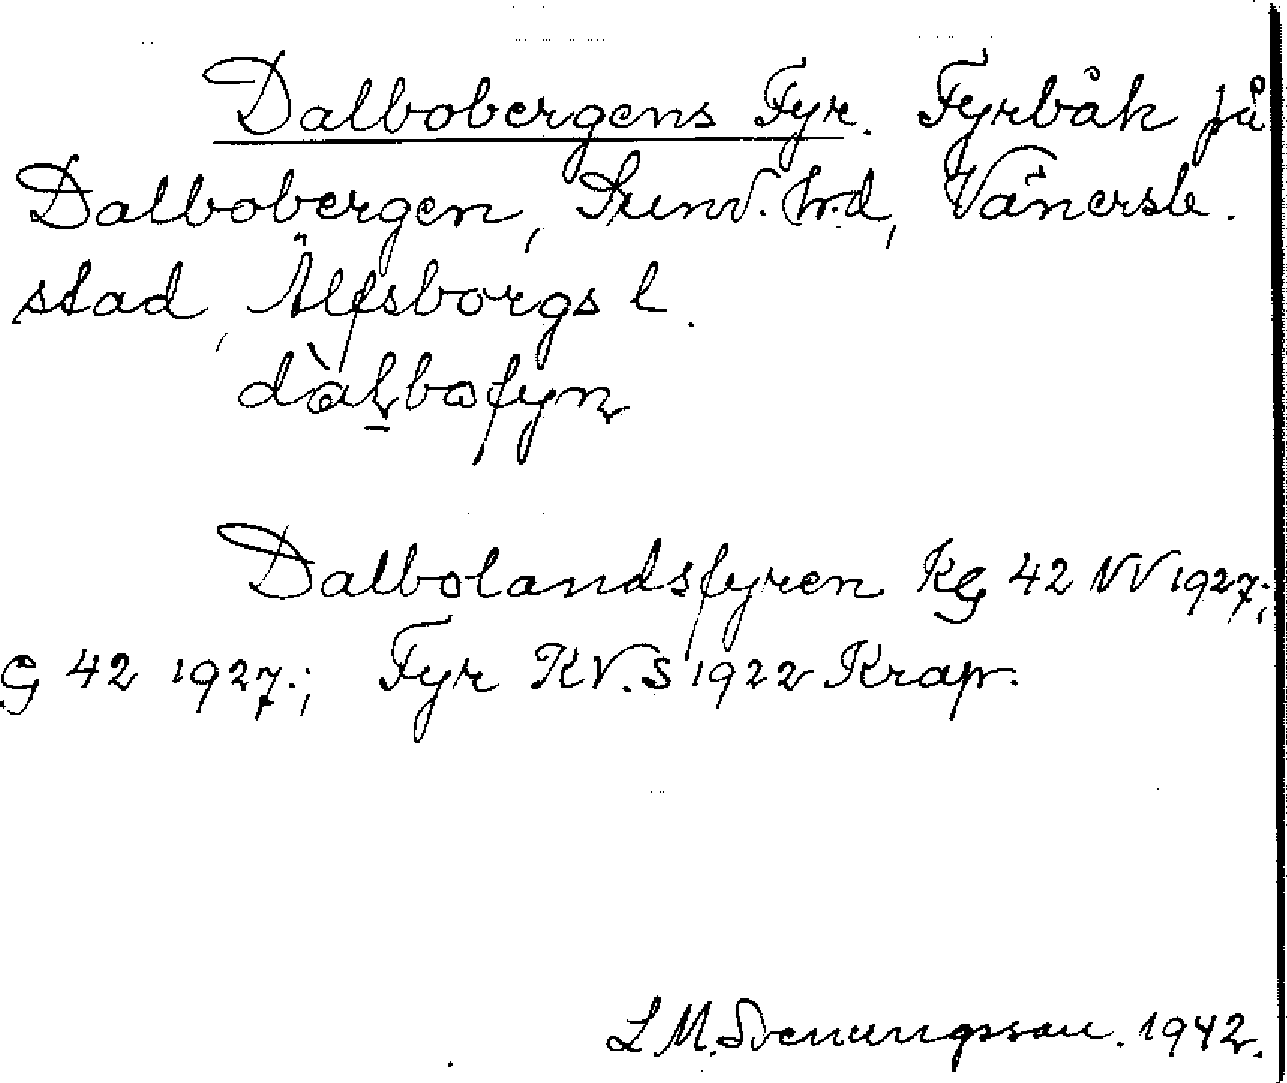 Dalbobergens Fyr. Fyrbåk på
Dalbobergen, Sund. hd, Vänersb.
stad, Älfsborgs l.
dàlbofyn
Dalbolandsfyren KG 42 NV 1927;
G 42 1927.; Fyr KV.S 1922 Krap.
L.M. Svenungsson. 1942.